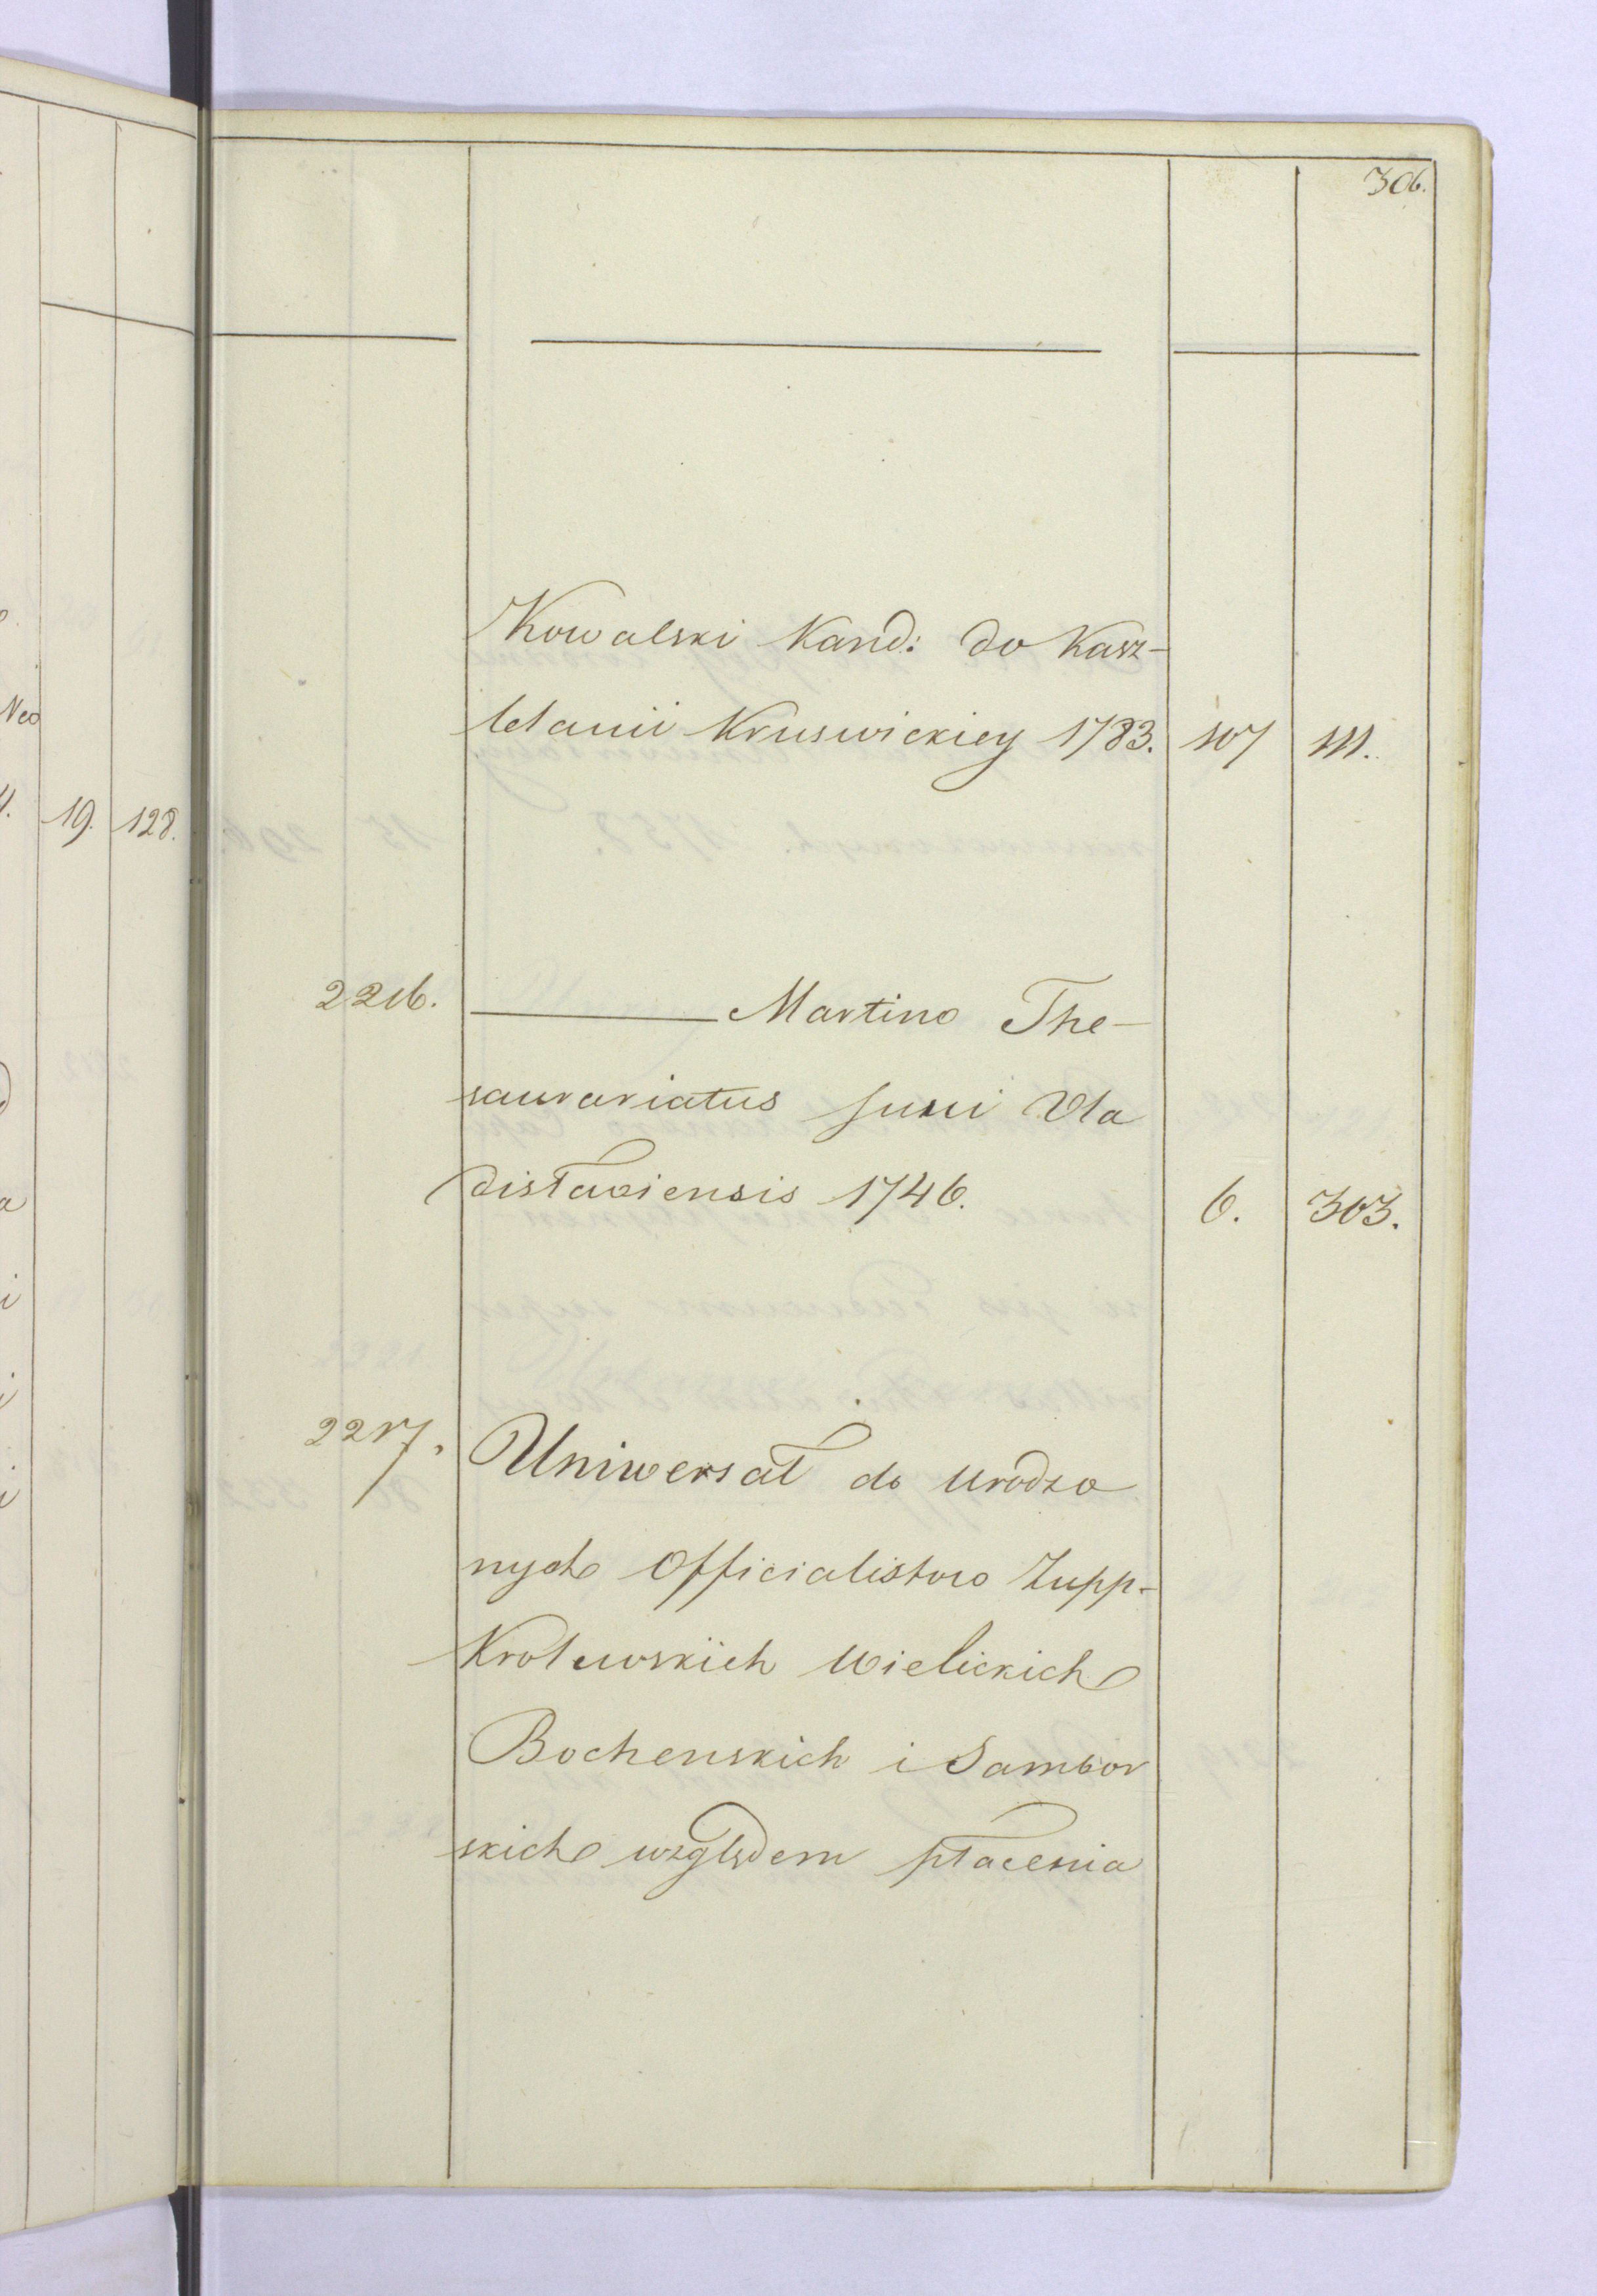 306.
Kowalski Kand: do Kasz-
telanii Kruswickiey 1783. 107 111.
2216. Martino The-
saurariatus Juni Vla
dislaviensis 1746. 6. 303.
2217. Uniwersał do urodzo
nych Officialistow Zupp-
Krolewskich Wielickich
Bochenskich i Sambor
skich względem płacenia
Neo
19. 128.